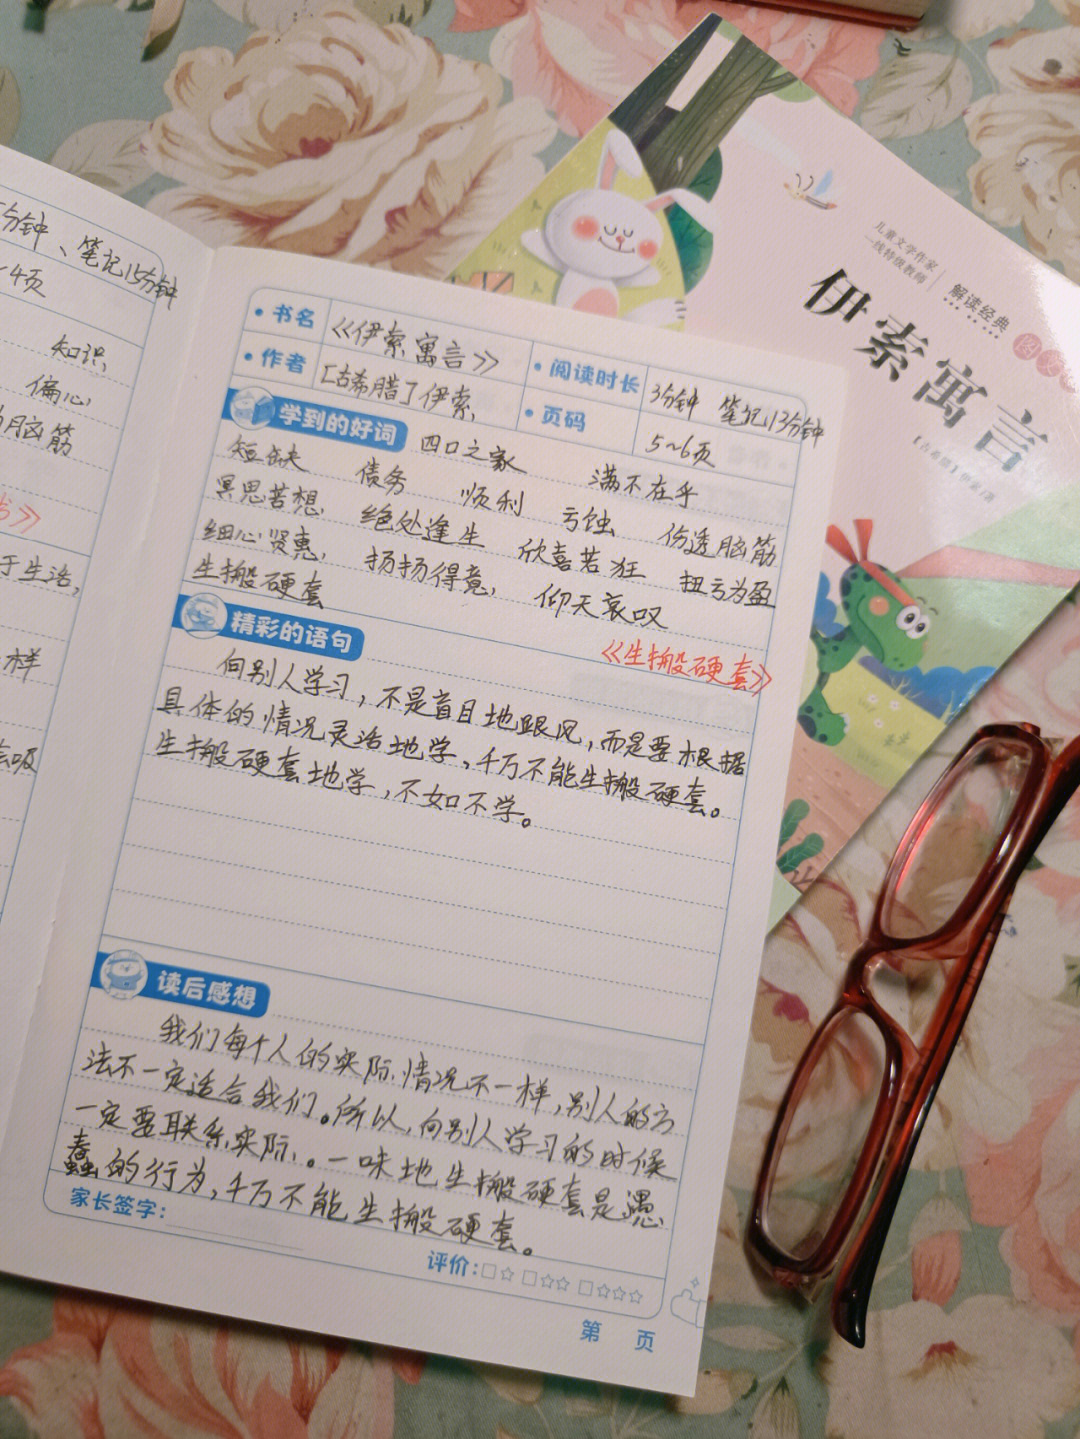 分钟、笔记15分钟
4页
知识
偏心
脑筋
》
于生活,
样
书名
《伊索寓言》
阅读时长
3分钟 笔记13分钟
作者
[古希腊] 伊索
页码
5~6页
学到的好词
短缺 四口之家 满不在乎
冥思苦想 债务 顺利 亏蚀 伤透脑筋
细心贤惠 绝处逢生 欣喜若狂 扭亏为盈
生搬硬套 扬扬得意 仰天哀叹
精彩的语句
《生搬硬套》
向别人学习,不是盲目地跟风,而是要根据
具体的情况灵活地学,千万不能生搬硬套。
生搬硬套地学,不如不学。
读后感想
我们每个人的实际情况不一样,别人的方
法不一定适合我们。所以,向别人学习的时候
一定要联系实际。一味地生搬硬套是愚
蠢的行为,千万不能生搬硬套。
家长签字:
评价:□☆ □☆☆ □☆☆☆
第 页
儿童文学作家
一线特级教师
解读经典
伊索寓言